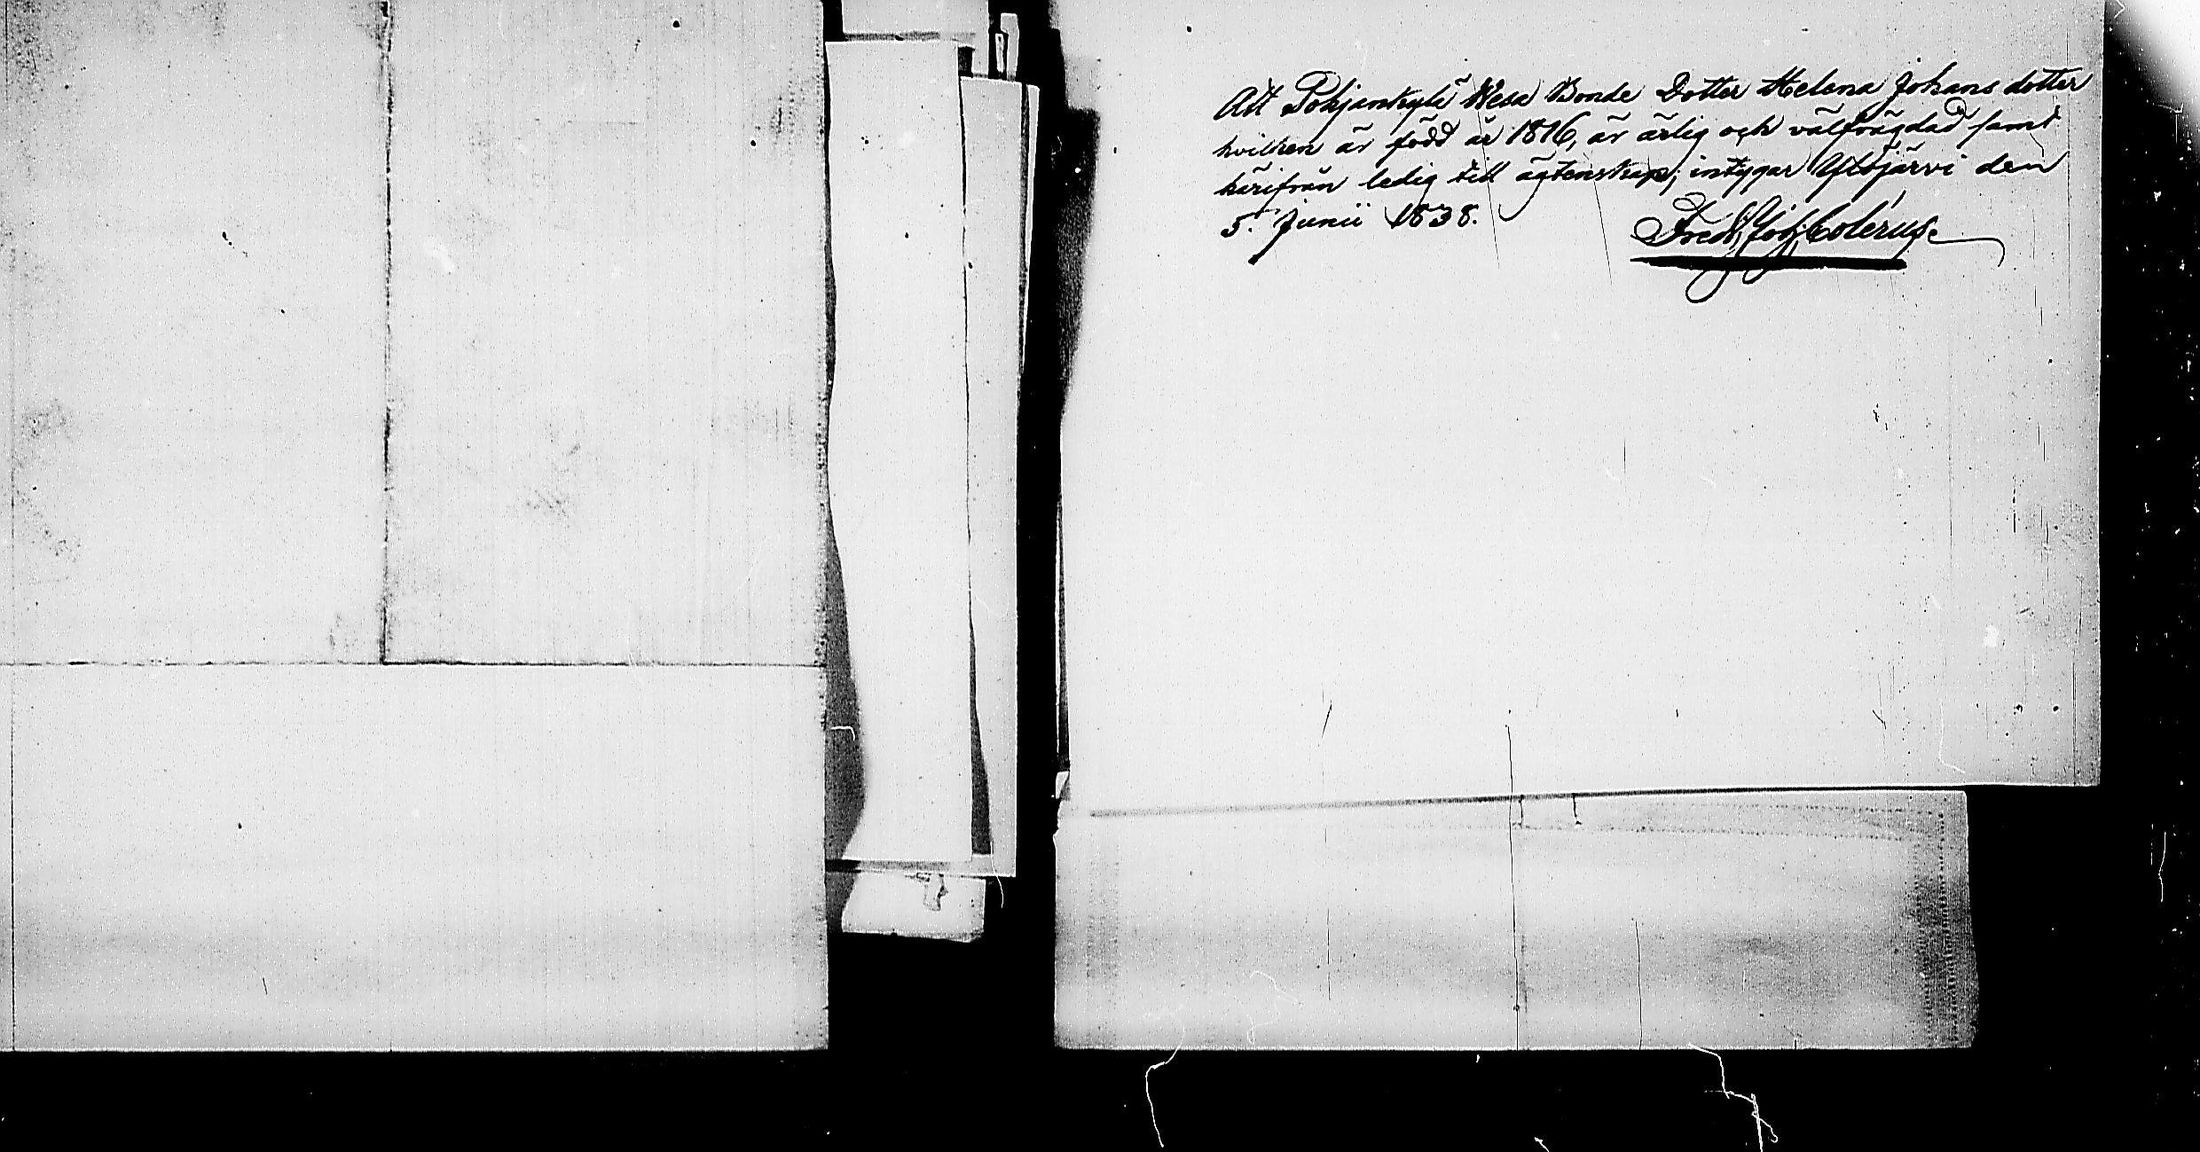 Att Pohjankylä Wesa Bonde Dotter Helena Johans dotter
hvilken är född år 1816, är ärlig och välfrägdad samt
härifrån ledig till ägtenskap; intygar Ylöjärvi den
5. Junii 1838.
Fredr. Joh. Colérus.